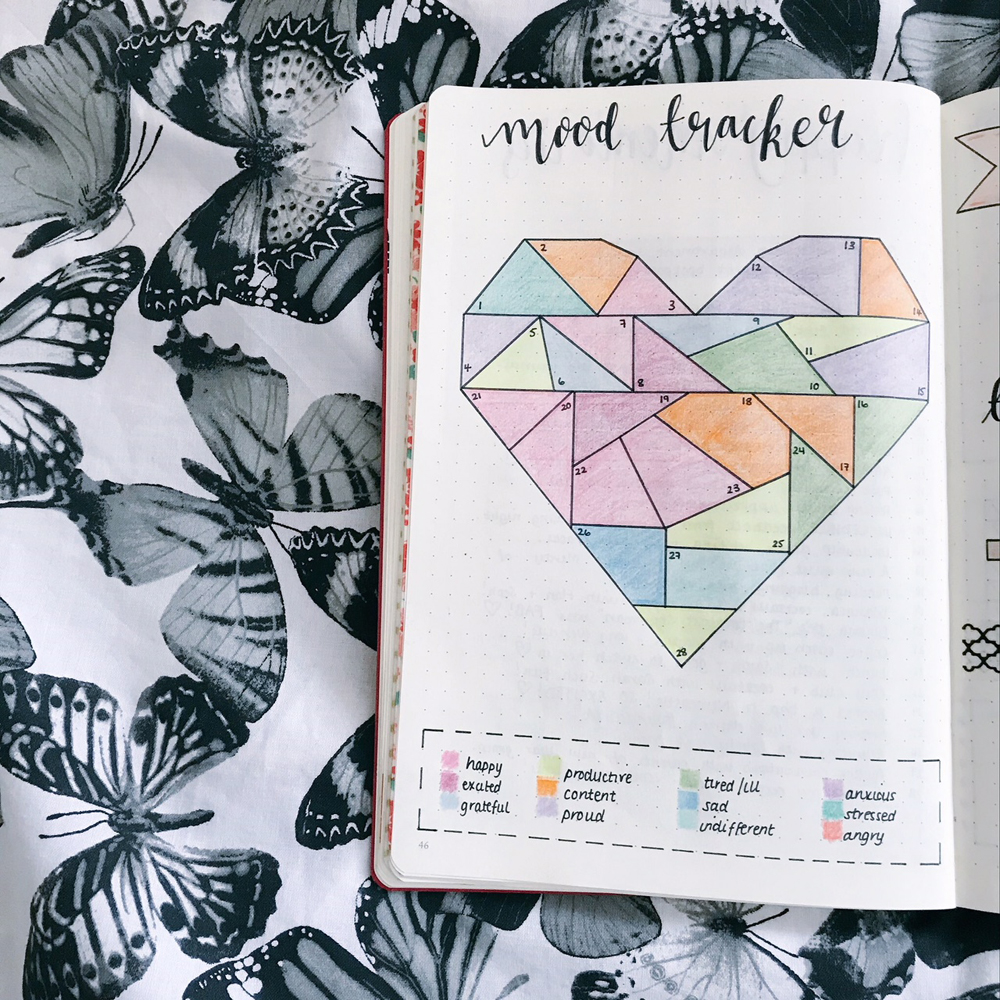 mood tracker
2
13
12
1
3
14
5
7
9
11
4
6
8
10
15
21
20
19
18
16
24
22
17
23
26
25
27
28
happy
excited
grateful
productive
content
proud
tired/ill
sad
indifferent
anxious
stressed
angry
46